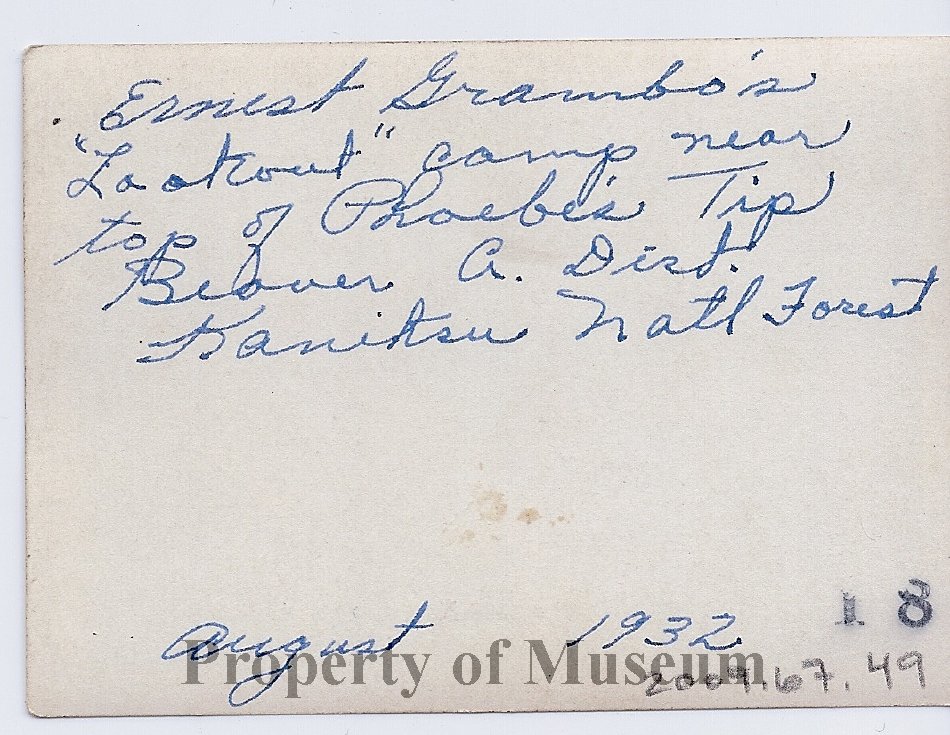 Ernest Grambo's
"Lookout" camp near
top of Phoebe's Tip
Beaver Cr. Dist.
Kaniksu Natl Forest
August 1932
18
Property of Museum
2009.67.49